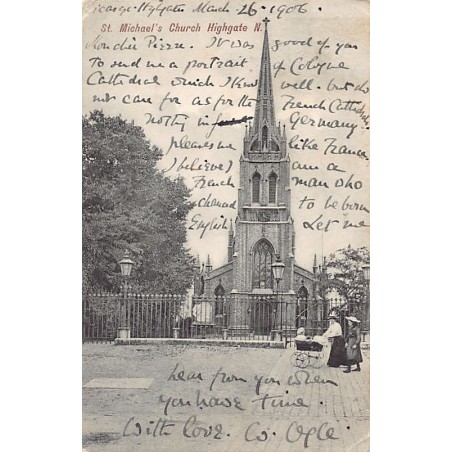 Highgate March 26. 1906.
St. Michael's Church Highgate N.
Mon cher Pierre. It was good of you
to send me a portrait of Cologne
Cathedral which I know well. but do
not care for as for the French Cathedrals
Nothing in Germany
pleases me like France
I believe I am a
French man who
chanced to be born
English. Let me
hear from you when
you have time.
With love. W. Ogle.